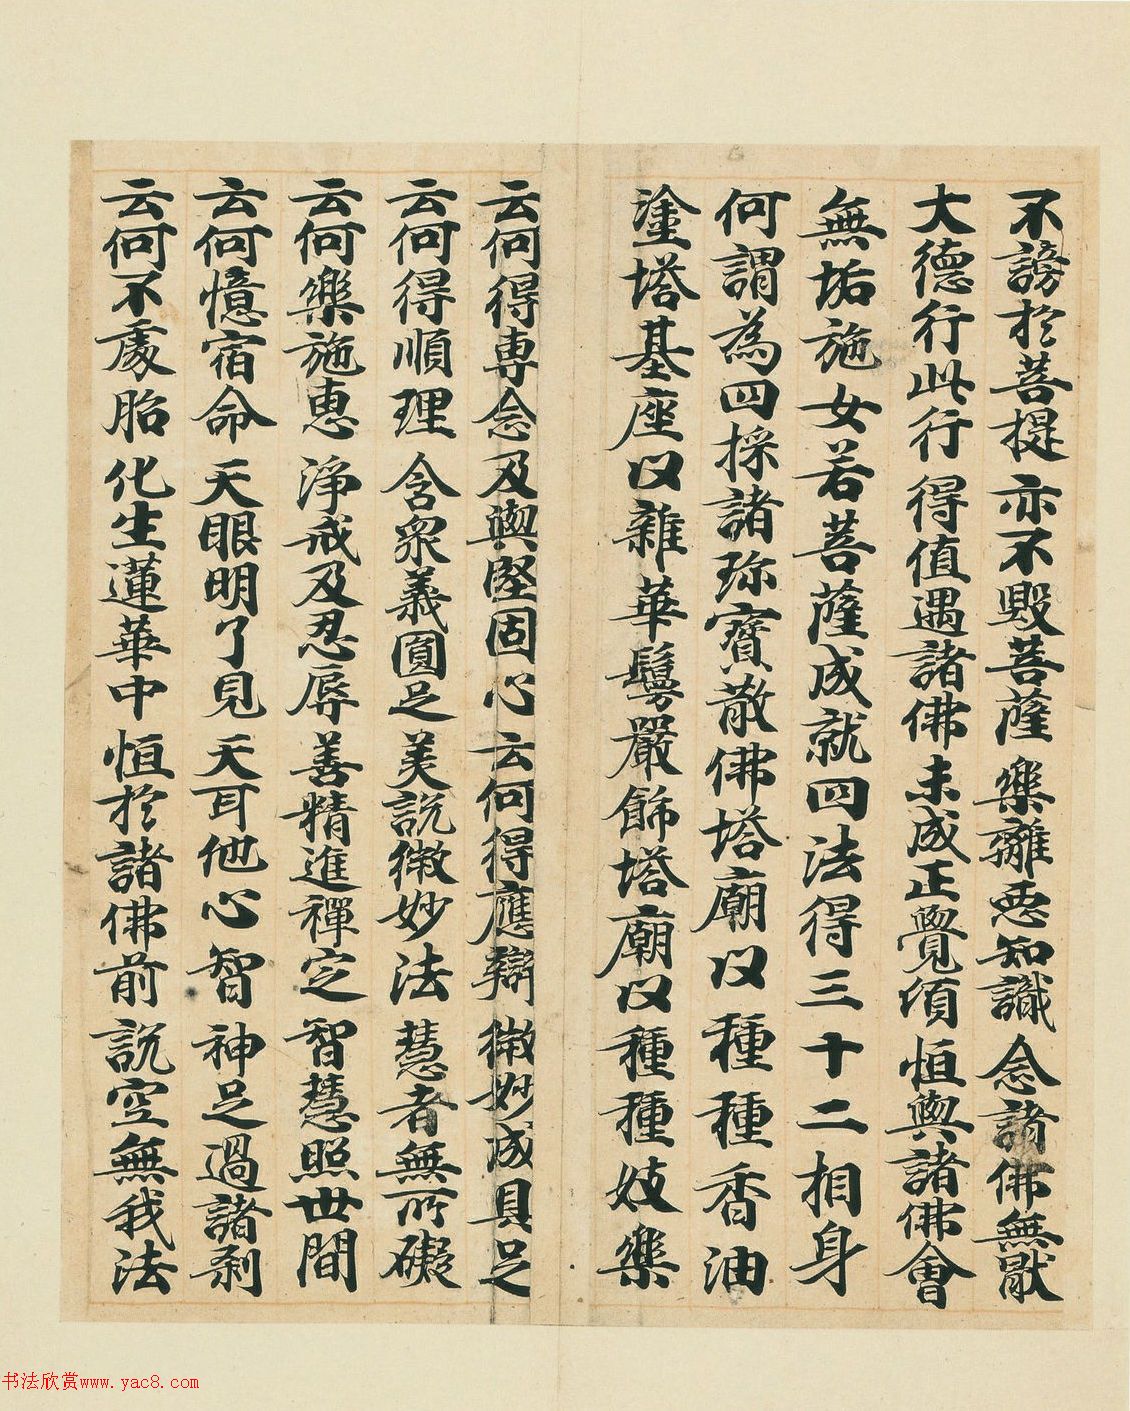 不謗於菩提 亦不毀菩薩 樂離惡知識 念諸佛無猒
大德行此行 得值遇諸佛 未成正覺頃 恒與諸佛會
無垢施女若菩薩成就四法得三十二相身
何謂為四採諸珎寶散佛塔廟以種種香油
塗塔基座以雜華鬘嚴飾塔廟以種種妓樂
云何得專念 及與堅固心 云何得應辯 微妙成具足
云何得順理 含衆義圓足 美說微妙法 慧者無所礙
云何樂施惠 淨戒及忍辱 善精進禪定 智慧照世間
云何憶宿命 天眼明了見 天耳他心智 神足過諸刹
云何不處胎 化生蓮華中 恒於諸佛前 說空無我法
书法欣赏www.yac8.com